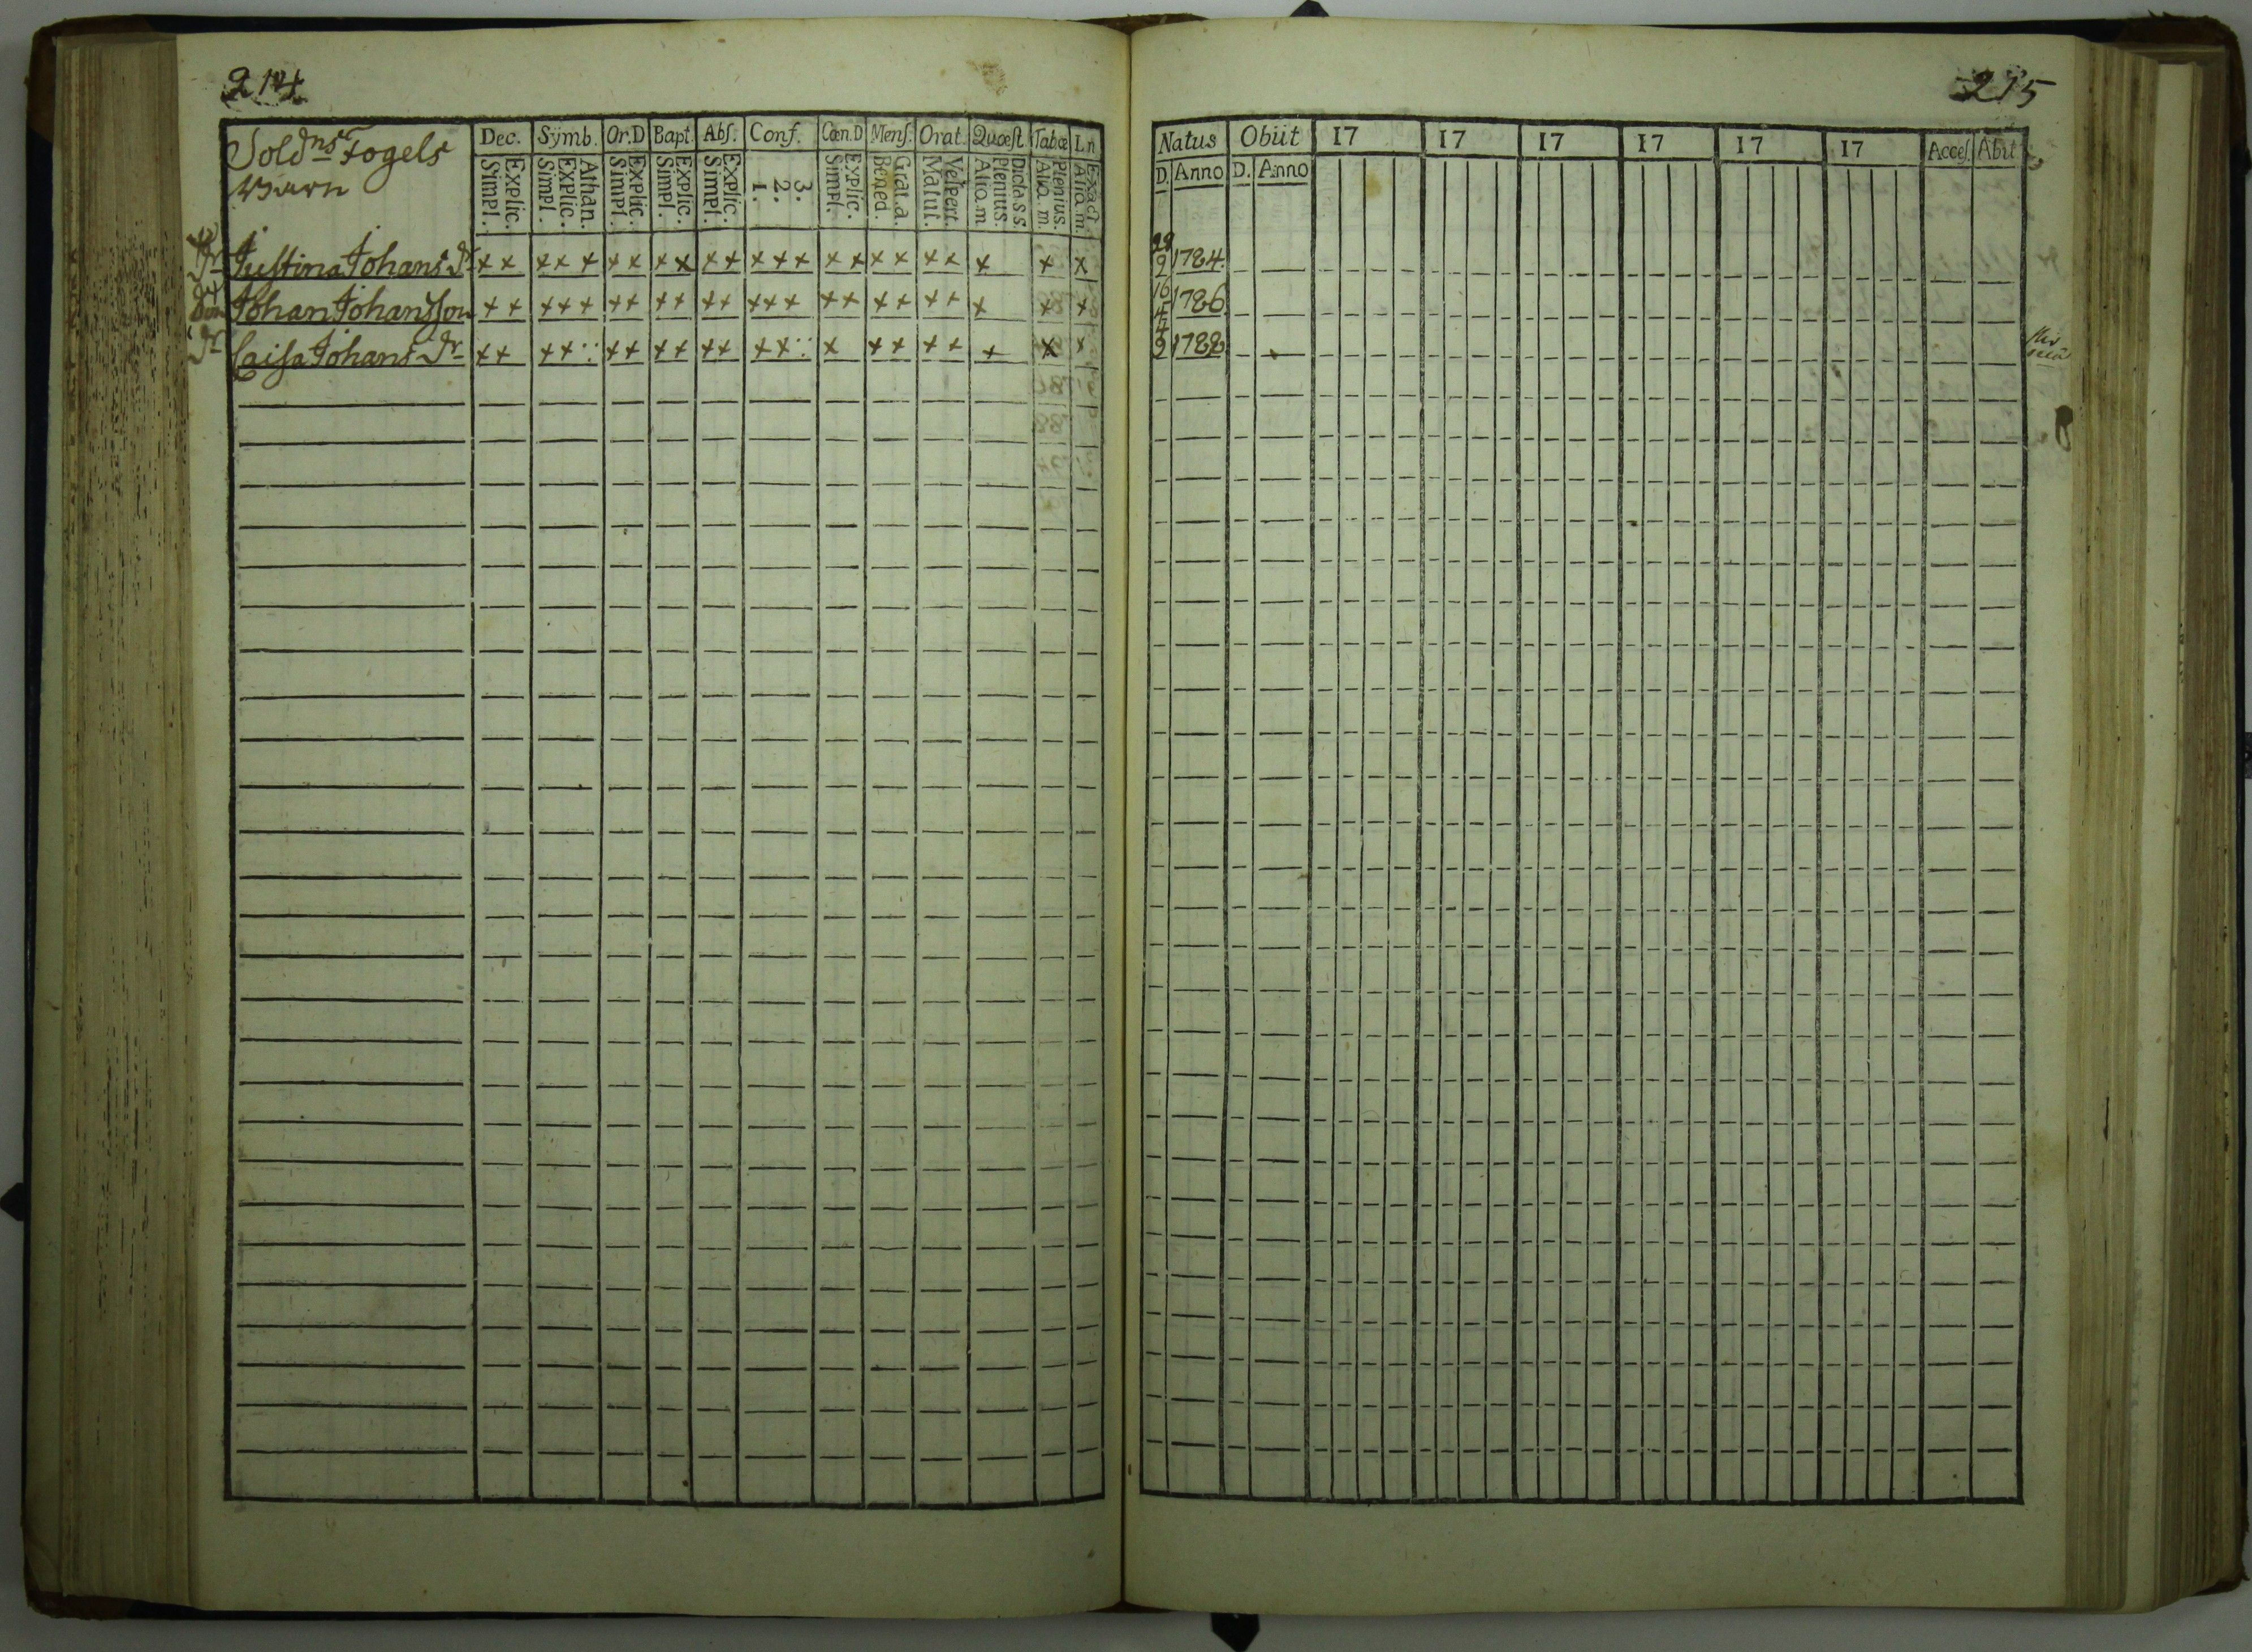 214
Sold.ns Fogels
Barn
Dec. Symb. Or.D Bapt. Abſ. Conf. Cœn.D Menſ. Orat. Quæſt Tabæ L.n
Explic. Simpl. Athan. Explic. Simpl. Explic. Simpl. Explic. Simpl. Explic. Simpl. 3. 2. 1. Explic. Simpl. Grat.a. Bened. Veſpert. Matut. Dicta.s.s. Plenius. Alio.m. Plenius. Alio.m. Exact. Alio.m.
Dr Justina Johans Dr x x x x x x x x x x x x x x x x x x x x x x x
Son Johan Johansson x x x x x x x x x x x x x x x x x x x x x x x
Dr Caisa Johans Dr x x x x : x x x x x x x x : x x x x x x x x
215
Natus Obiit 17 17 17 17 17 17 Acceſ. Abit
D. Anno D. Anno
29/2 1784.
16/4 1786.
4/2 1788